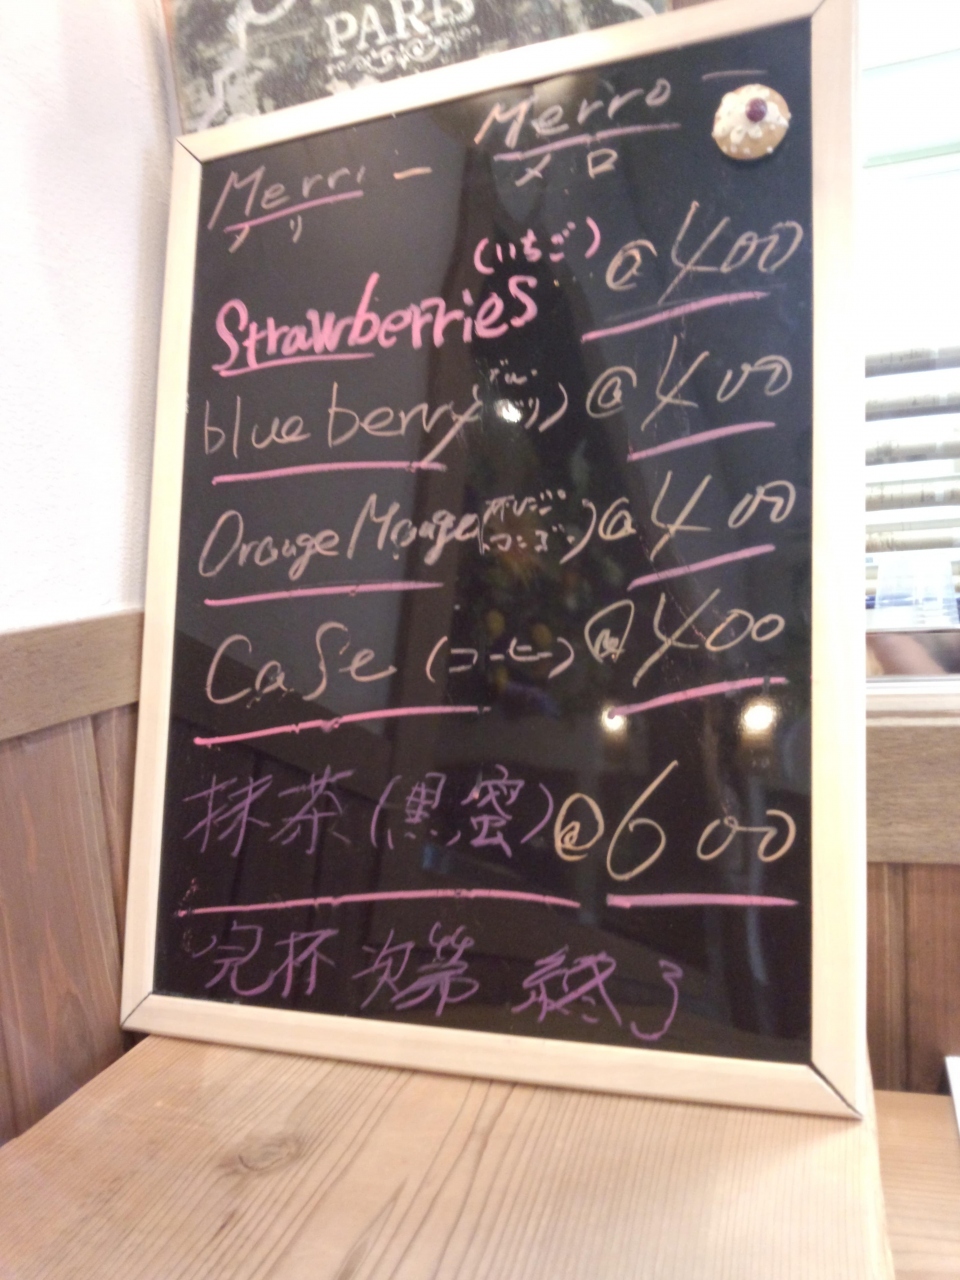 PARIS
Merri - Merro
メリ メロ
(いちご)
Strawberries @¥400
blueberry (ブルーベリー) @¥400
Orange Mango (オレンジ マンゴー) @¥400
Cafe (コーヒー) @¥400
抹茶(黒蜜) @600
完杯次第 終了